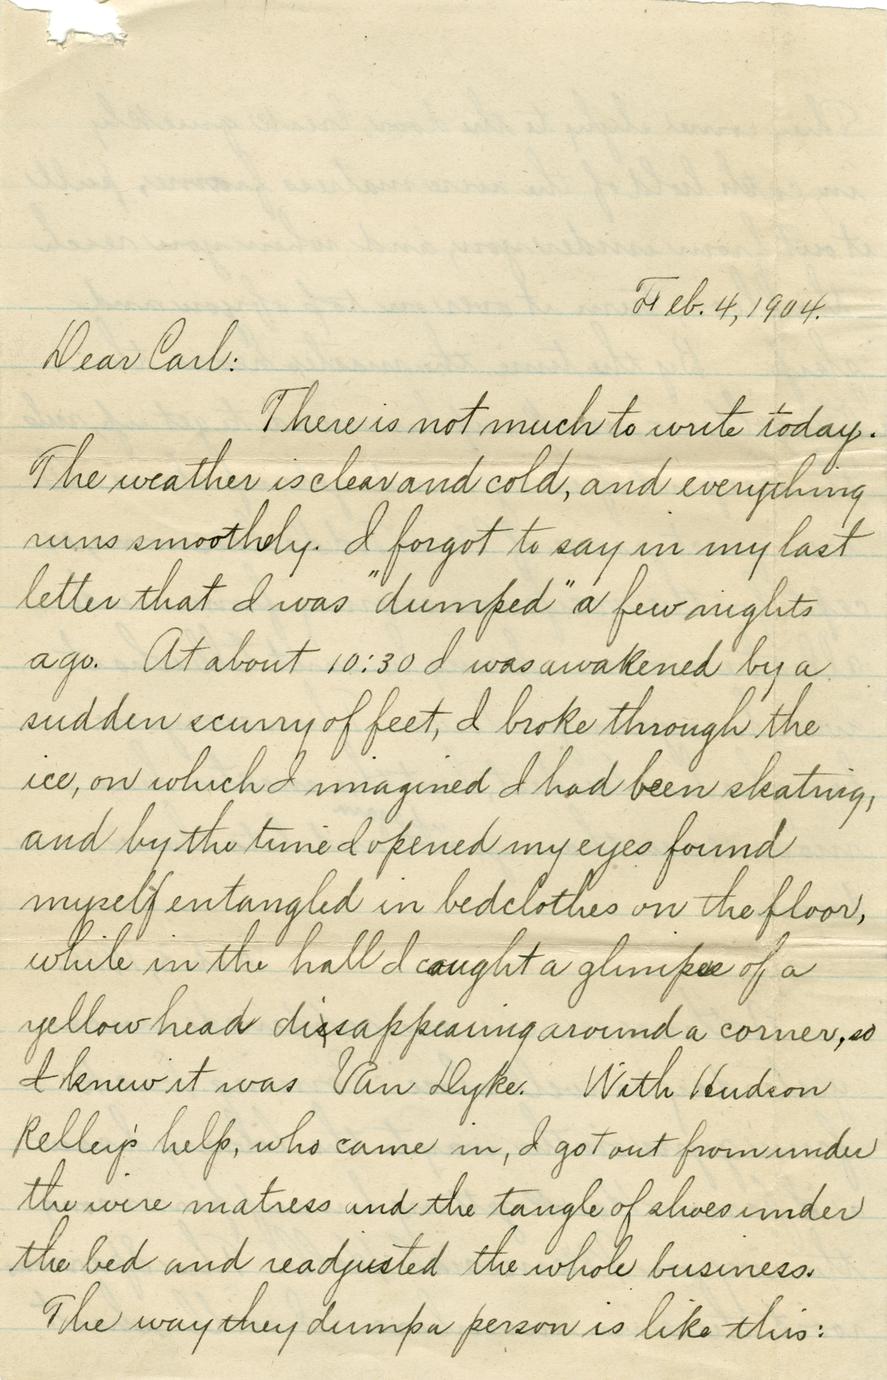 Feb. 4, 1904.
Dear Carl:
There is not much to write today.
The weather is clear and cold, and everything
runs smoothely. I forgot to say in my last
letter that I was "dumped" a few nights
ago. At about 10:30 I was awakened by a
sudden scurry of feet, I broke through the
ice, on which I imagined I had been skating,
and by the time I opened my eyes found
myself entangled in bedclothes on the floor,
while in the hall I caught a glimpse of a
yellow head dissappearing around a corner, so
I knew it was Van Dyke. With Hudson
Kelley's help, who came in, I got out from under
the wire matress and the tangle of shoes under
the bed and readjusted the whole business.
The way they dump a person is like this: